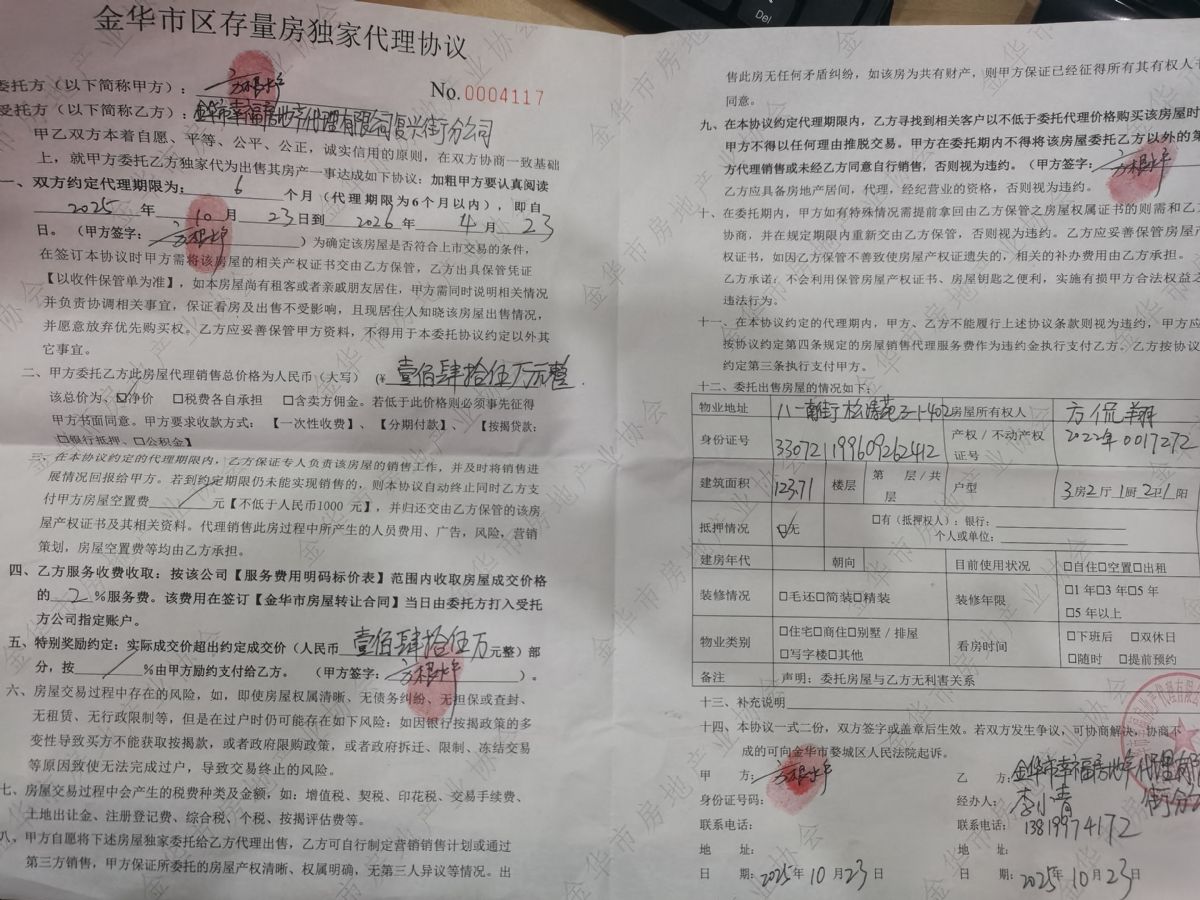 金华市区存量房独家代理协议
No.0004117
委托方（以下简称甲方）：方根水
受托方（以下简称乙方）：金华市幸福房地产代理有限公司复兴街分公司
甲乙双方本着自愿、平等、公平、公正，诚实信用的原则，在双方协商一致基础
上，就甲方委托乙方独家代为出售其房产一事达成如下协议：加粗甲方要认真阅读
一、双方约定代理期限为：6个月（代理期限为6个月以内），即自
2025年10月23日到2026年4月23
日。（甲方签字：方根水）为确定该房屋是否符合上市交易的条件，
在签订本协议时甲方需将该房屋的相关产权证书交由乙方保管，乙方出具保管凭证
【以收件保管单为准】，如本房屋尚有租客或者亲戚朋友居住，甲方需同时说明相关情况
并负责协调相关事宜，保证看房及出售不受影响，且现居住人知晓该房屋出售情况，
并愿意放弃优先购买权。乙方应妥善保管甲方资料，不得用于本委托协议约定以外其
它事宜。
二、甲方委托乙方此房屋代理销售总价格为人民币（大写）（¥壹佰肆拾伍万元整.
该总价为、☑净价 □税费各自承担 □含卖方佣金。若低于此价格则必须事先征得
甲方书面同意。甲方要求收款方式：【一次性收费】、【分期付款】、【按揭贷款：
□银行抵押、□公积金】
三、在本协议约定的代理期限内，乙方保证专人负责该房屋的销售工作，并及时将销售进
展情况回报给甲方。若到约定期限仍未能实现销售的，则本协议自动终止同时乙方支
付甲方房屋空置费 / 元【不低于人民币1000 元】，并归还交由乙方保管的该房
屋产权证书及其相关资料。代理销售此房过程中所产生的人员费用、广告，风险，营销
策划，房屋空置费等均由乙方承担。
四、乙方服务收费收取：按该公司【服务费用明码标价表】范围内收取房屋成交价格
的 2 %服务费。该费用在签订【金华市房屋转让合同】当日由委托方打入受托
方公司指定账户。
五、特别奖励约定：实际成交价超出约定成交价（人民币壹佰肆拾伍万元整）部
分，按 / %由甲方励约支付给乙方。（甲方签字：方根水）。
六、房屋交易过程中存在的风险，如，即使房屋权属清晰、无债务纠纷、无担保或查封、
无租赁、无行政限制等，但是在过户时仍可能存在如下风险：如因银行按揭政策的多
变性导致买方不能获取按揭款，或者政府限购政策，或者政府拆迁、限制、冻结交易
等原因致使无法完成过户，导致交易终止的风险。
七、房屋交易过程中会产生的税费种类及金额，如：增值税、契税、印花税、交易手续费、
土地出让金、注册登记费、综合税、个税、按揭评估费等。
八、甲方自愿将下述房屋独家委托给乙方代理出售，乙方可自行制定营销销售计划或通过
第三方销售，甲方保证所委托的房屋产权清晰、权属明确，无第三人异议等情况。出
售此房无任何矛盾纠纷，如该房为共有财产，则甲方保证已经征得所有其有权人书
同意。
九、在本协议约定代理期限内，乙方寻找到相关客户以不低于委托代理价格购买该房屋时
甲方不得以任何理由推脱交易。甲方在委托期内不得将该房屋委托乙方以外的第
方代理销售或未经乙方同意自行销售，否则视为违约。（甲方签字：方根水
乙方应具备房地产居间，代理，经纪营业的资格，否则视为违约。
十、在委托期内，甲方如有特殊情况需提前拿回由乙方保管之房屋权属证书的则需和乙方
协商，并在规定期限内重新交由乙方保管，否则视为违约。乙方应妥善保管房屋产
权证书，如因乙方保管不善致使房屋产权证遗失的，相关的补办费用由乙方承担。
乙方承诺：不会利用保管房屋产权证书、房屋钥匙之便利，实施有损甲方合法权益之
违法行为。
十一、在本协议约定的代理期内，甲方、乙方不能履行上述协议条款则视为违约，甲方应
按协议约定第四条规定的房屋销售代理服务费作为违约金执行支付乙方。乙方按协议
约定第三条执行支付甲方。
十二、委托出售房屋的情况如下：
物业地址 八一南街 松清苑 3-1-402 房屋所有权人 方侃翔
身份证号 330721199609262412 产权/不动产权证号 2022年0017272
建筑面积 123.71 楼层 第 层/共 层 户型 3房2厅1厨2卫1阳
抵押情况 ☑无 □有（抵押权人）：银行：
个人或单位：
建房年代 朝向 目前使用状况 □自住□空置□出租
装修情况 □毛还□简装□精装 装修年限 □1年□3年□5年
□5年以上
物业类别 □住宅□商住□别墅/排屋
□写字楼□其他
看房时间 □下班后 □双休日
□随时 □提前预约
备注 声明：委托房屋与乙方无利害关系
十三、补充说明
十四、本协议一式二份，双方签字或盖章后生效。若双方发生争议，可协商解决，协商不
成的可向金华市婺城区人民法院起诉。
甲 方：方根水
身份证号码：
联系电话：
地 址：
日 期：2025年10月23日
乙 方：金华市幸福房地产代理有限
街分公
经办人：李小青
联系电话：13819974172
地 址：
日 期：2025年10月23日